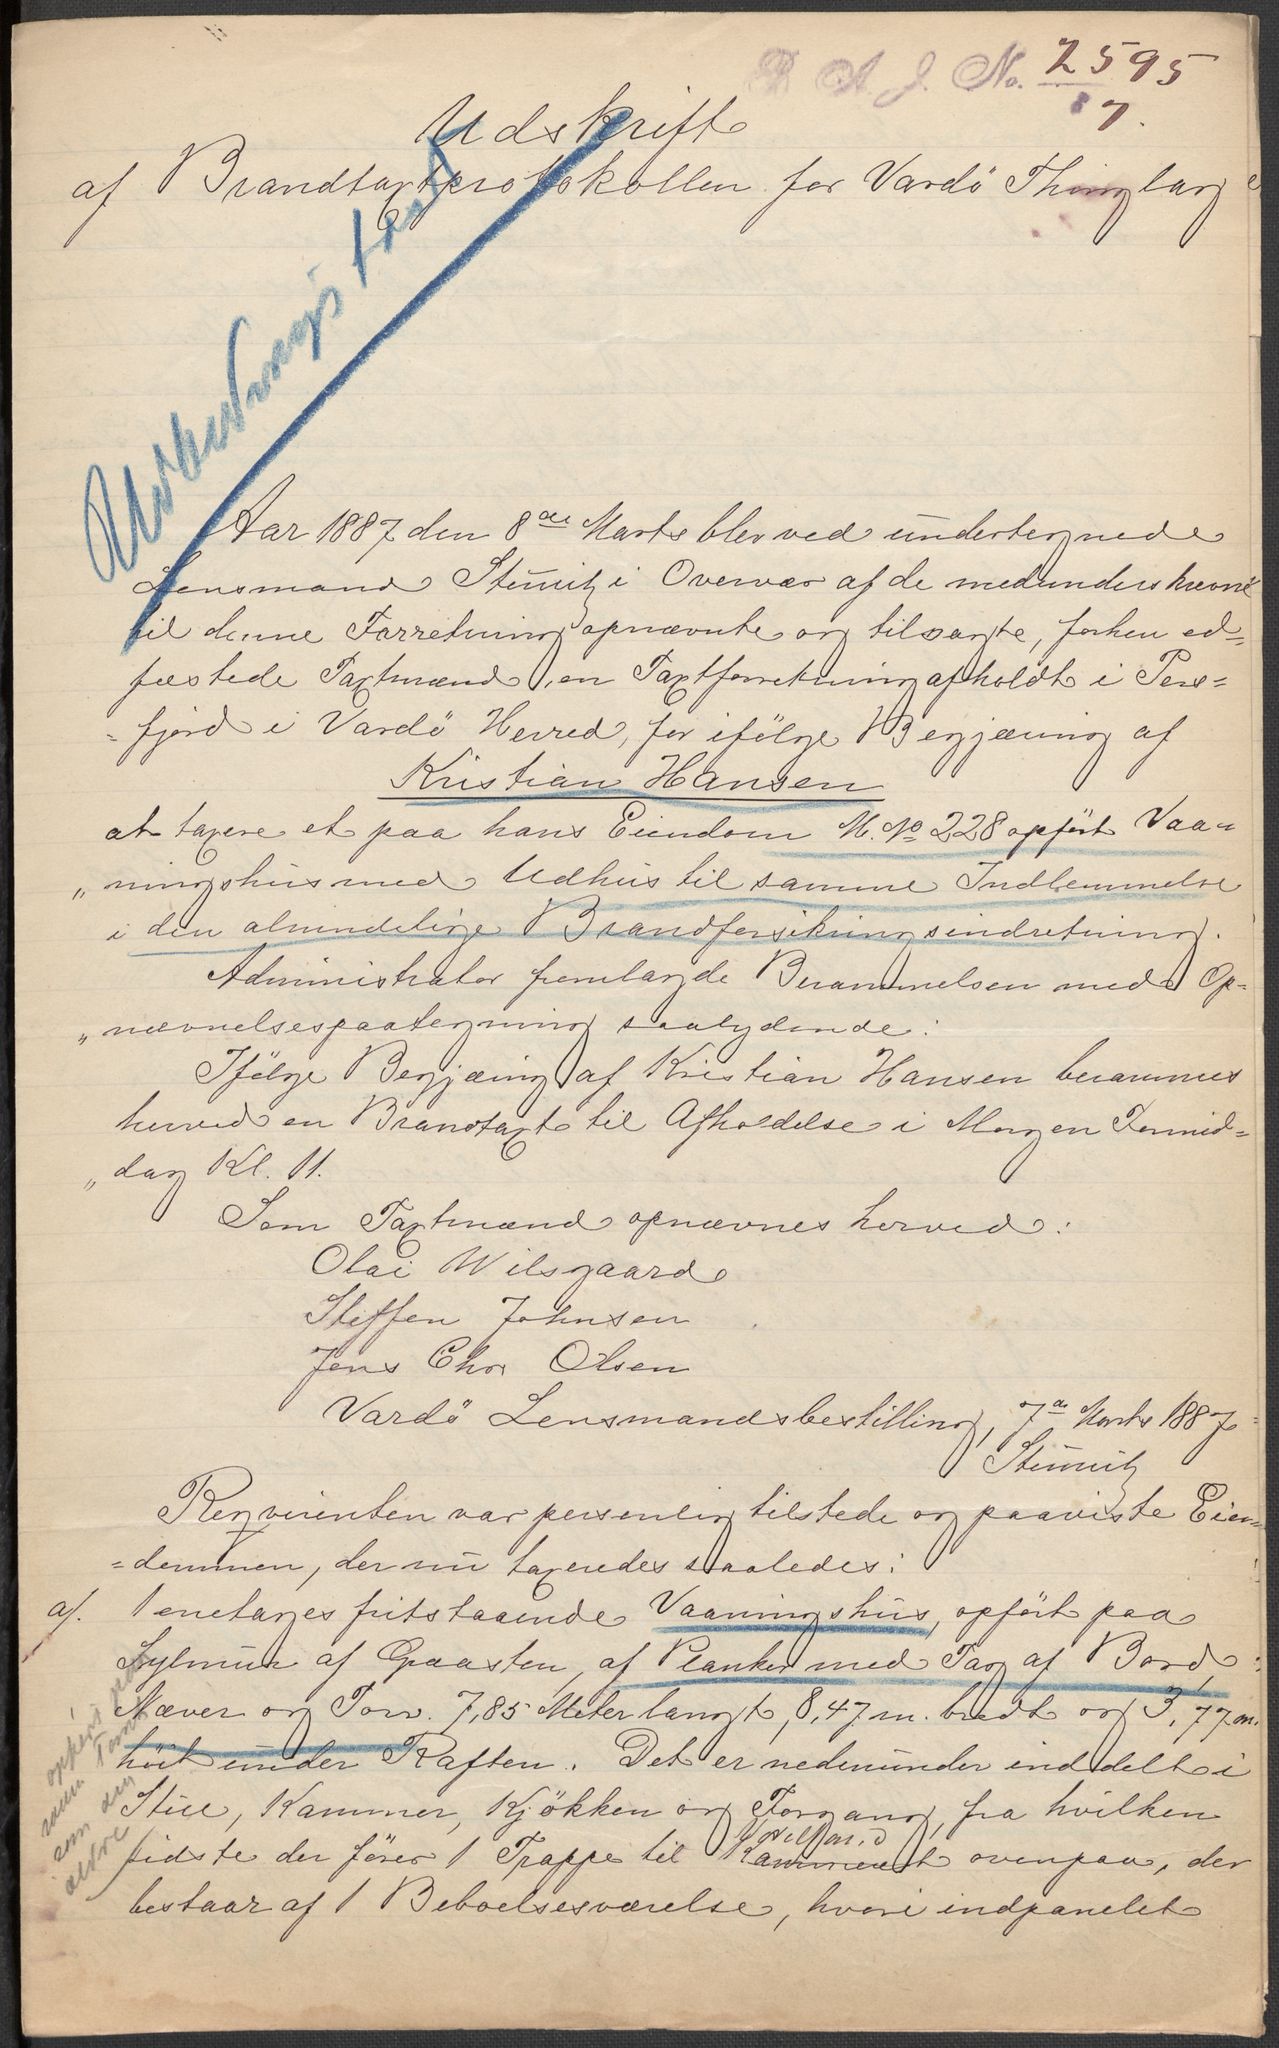 B. A. J. No. 2595
87.
Udskrift
af Brandtaxtprotokollen for Vardö Thinglag
Aar 1887 den 8de Marts blev ved undertegnede
Lensmand Steinitz i Overvær af de medunderskrevne
til denne Forretning opnævnte og tilsagte, forhen ed=
fæstede Taxtmænd, en Taxtforretning afholdt i Pers=
=fjord i Vardö Herred, for ifölge Begjæring af
Kristian Hansen
at taxere et paa hans Eiendom M. No 228 opfört Vaa=
„ningshus med Udhus til samme Indlemmelse
i den almindelige Brandforsikringsindretning.
Administrator fremlagde Berammelsen med Op=
„nævnelsespaategning saalydende:
Ifölge Begjæring af Kristian Hansen berammes
herved en Brandtaxt til Afholdelse i Morgen Formid=
„dag Kl. 11.
Som Taxtmænd opnævnes herved:
Olai Wilsgaard
Steffen Johnsen
Jens Chr Olsen
Vardö Lensmandsbestilling, 7de Marts 1887
Steinitz
Reqvirenten var personlig tilstede og paaviste Eien=
=dommen, der nu taxeredes saaledes:
a/. 1 enetages fritstaaende Vaaningshus, opfört paa
Sylmur af Graasten, af Planker med Tag af Bord,
Næver og Torv. 7,85 Meter langt, 8,47 m. bredt og 3,77 m.
höit under Raften. Det er nedenunder inddelt i
Stue, Kammer, Kjökken og Forgang, fra hvilken
sidste der förer 1 Trappe til ovenpaa, der
bestaar af 1 Beboelsesværelse, hvori indpanelet
opført paa
samme Tomt
som den
ældre